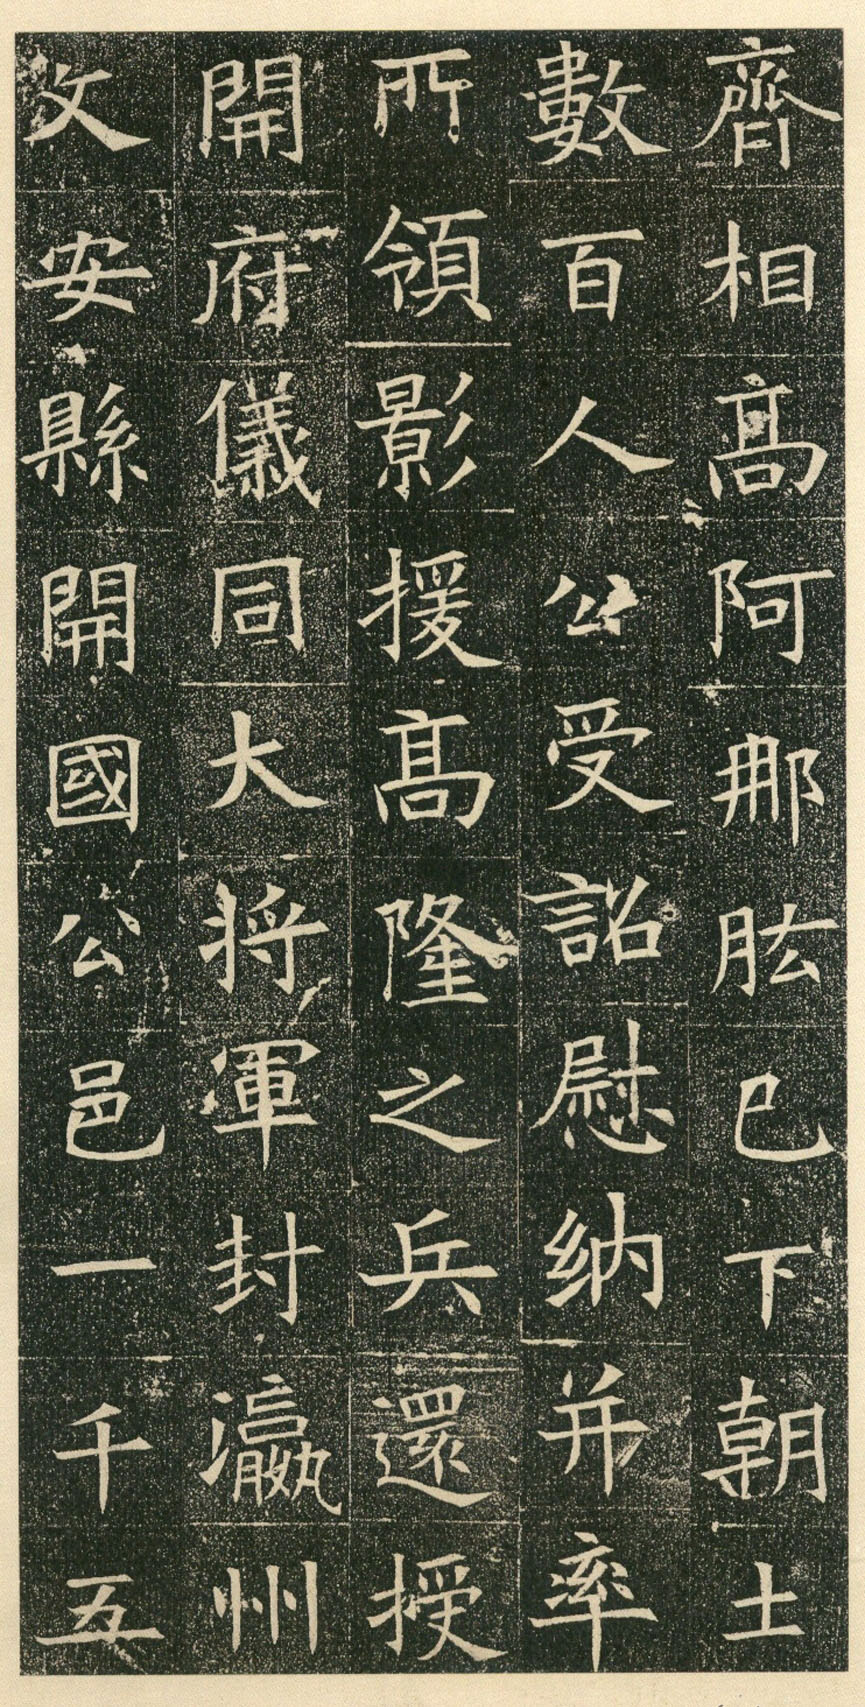 齊相高阿那肱已下朝士
數百人公受詔慰納并率
所領影援高隆之兵還授
開府儀同大將軍封瀛州
文安縣開國公邑一千五